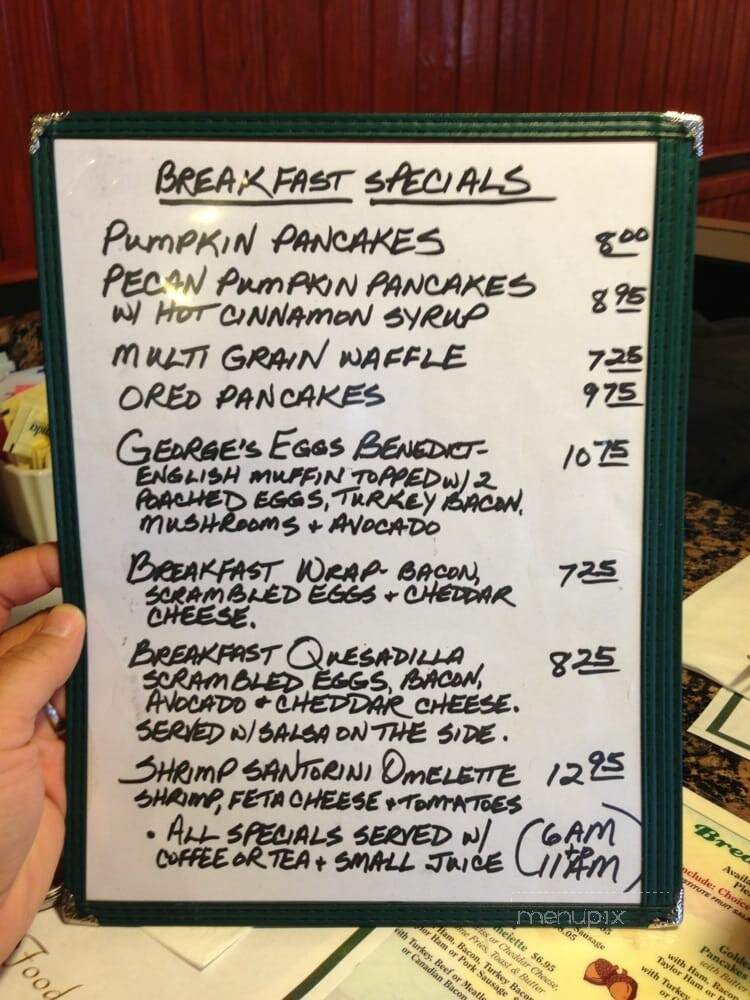 BREAKFAST SPECIALS
PUMPKIN PANCAKES 8.00
PECAN PUMPKIN PANCAKES
W/ HOT CINNAMON SYRUP 8.95
MULTI GRAIN WAFFLE 7.25
OREO PANCAKES 9.75
GEORGE'S EGGS BENEDICT- 10.75
ENGLISH MUFFIN TOPPED W/ 2
POACHED EGGS, TURKEY BACON,
MUSHROOMS + AVOCADO
BREAKFAST WRAP- BACON, 7.25
SCRAMBLED EGGS + CHEDDAR
CHEESE.
BREAKFAST QUESADILLA 8.25
SCRAMBLED EGGS, BACON,
AVOCADO + CHEDDAR CHEESE.
SERVED W/ SALSA ON THE SIDE.
SHRIMP SANTORINI OMELETTE 12.95
SHRIMP, FETA CHEESE + TOMATOES
• ALL SPECIALS SERVED W/ (6AM
COFFEE OR TEA + SMALL JUICE to 11AM)
menupix
Food
Brea
Availa
nclude: Choice
Golde
Pancakes
with Butter
with Ham, Bacon
Taylor Ham or P
with Turkey
melette $6.95
ss or Cheddar Cheese,
me Fries, Toast & Butter
Ham, Bacon, Turkey Bacon
lor Ham or Pork Sausage
ith Turkey, Beef or Meatles
or Canadian Bacon
Sausage